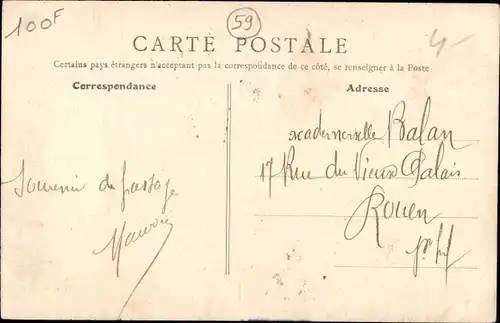 100F
59
4-
CARTE POSTALE
Certains pays étrangers n'acceptant pas la correspondance de ce côté, se renseigner à la Poste
Correspondance
Adresse
Mademoiselle Balan
17 Rue du Vieux Palais
Rouen
Souvenir de passage